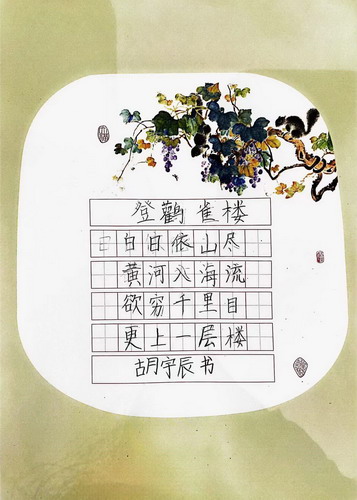 登鹳雀楼
白日依山尽
黄河入海流
欲穷千里目
更上一层楼
胡宇辰书